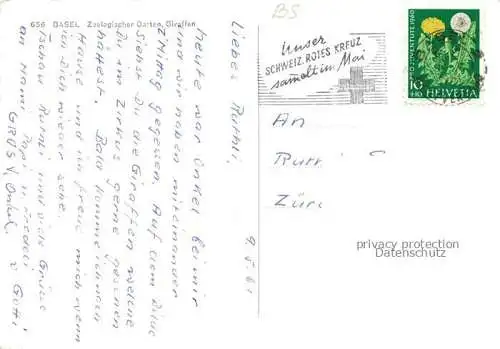 656 BASEL Zoologischer Garten, Giraffen
BS
Unser
SCHWEIZ. ROTES KREUZ
sammelt im Mai
PRO JUVENTUTE 1960
10
+10
HELVETIA
Liebes Ruthli,
Heute war Onkel bei mir
und wir haben miteinander
z'Mittag gegessen. Auf dem Bild
siehst Du die Giraffen welche
Du im Zirkus gerne gesehen
hättest. Bald komme ich nach
Hause und ich freue mich wenn
ich Dich wieder sehe.
Tschau Ruthli und viele Grüsse
an Mami, Papi u.
v Gotti
GRUSS v. Onkel.
9.5.61
An
Zür
privacy protection
Datenschutz